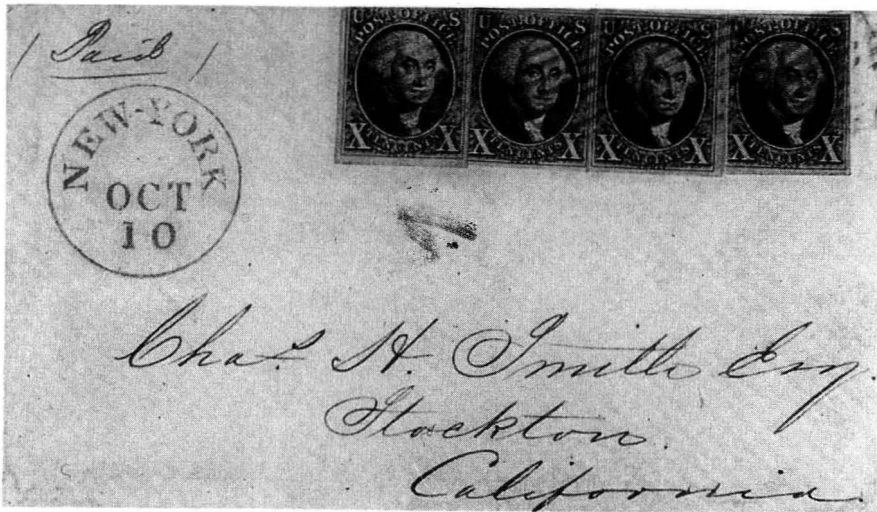 Paid
NEW-YORK
OCT
10
U S
POST OFFICE
X TEN CENTS X
U S
POST OFFICE
X TEN CENTS X
U S
POST OFFICE
X TEN CENTS X
U S
POST OFFICE
X TEN CENTS X
Chas. H. Smith Esq.
Stockton.
California.